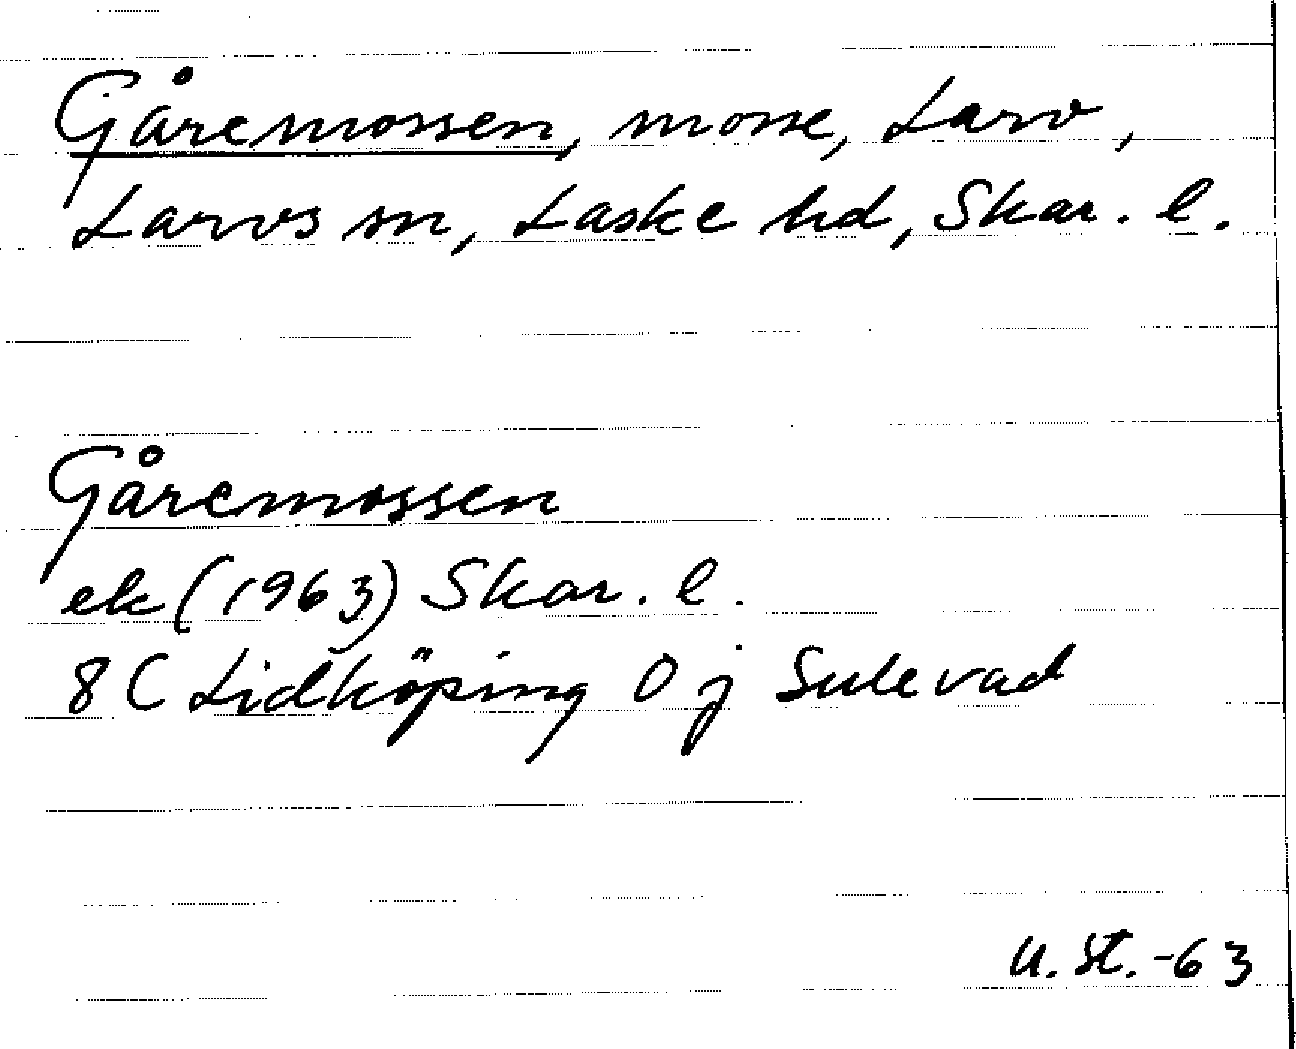 Gåremossen, mosse, Larv,
Larvs sn, Laske hd, Skar. l.
Gåremossen
ek (1963) Skar. l.
8 C Lidköping 0 j Sulevad
U. St. -63